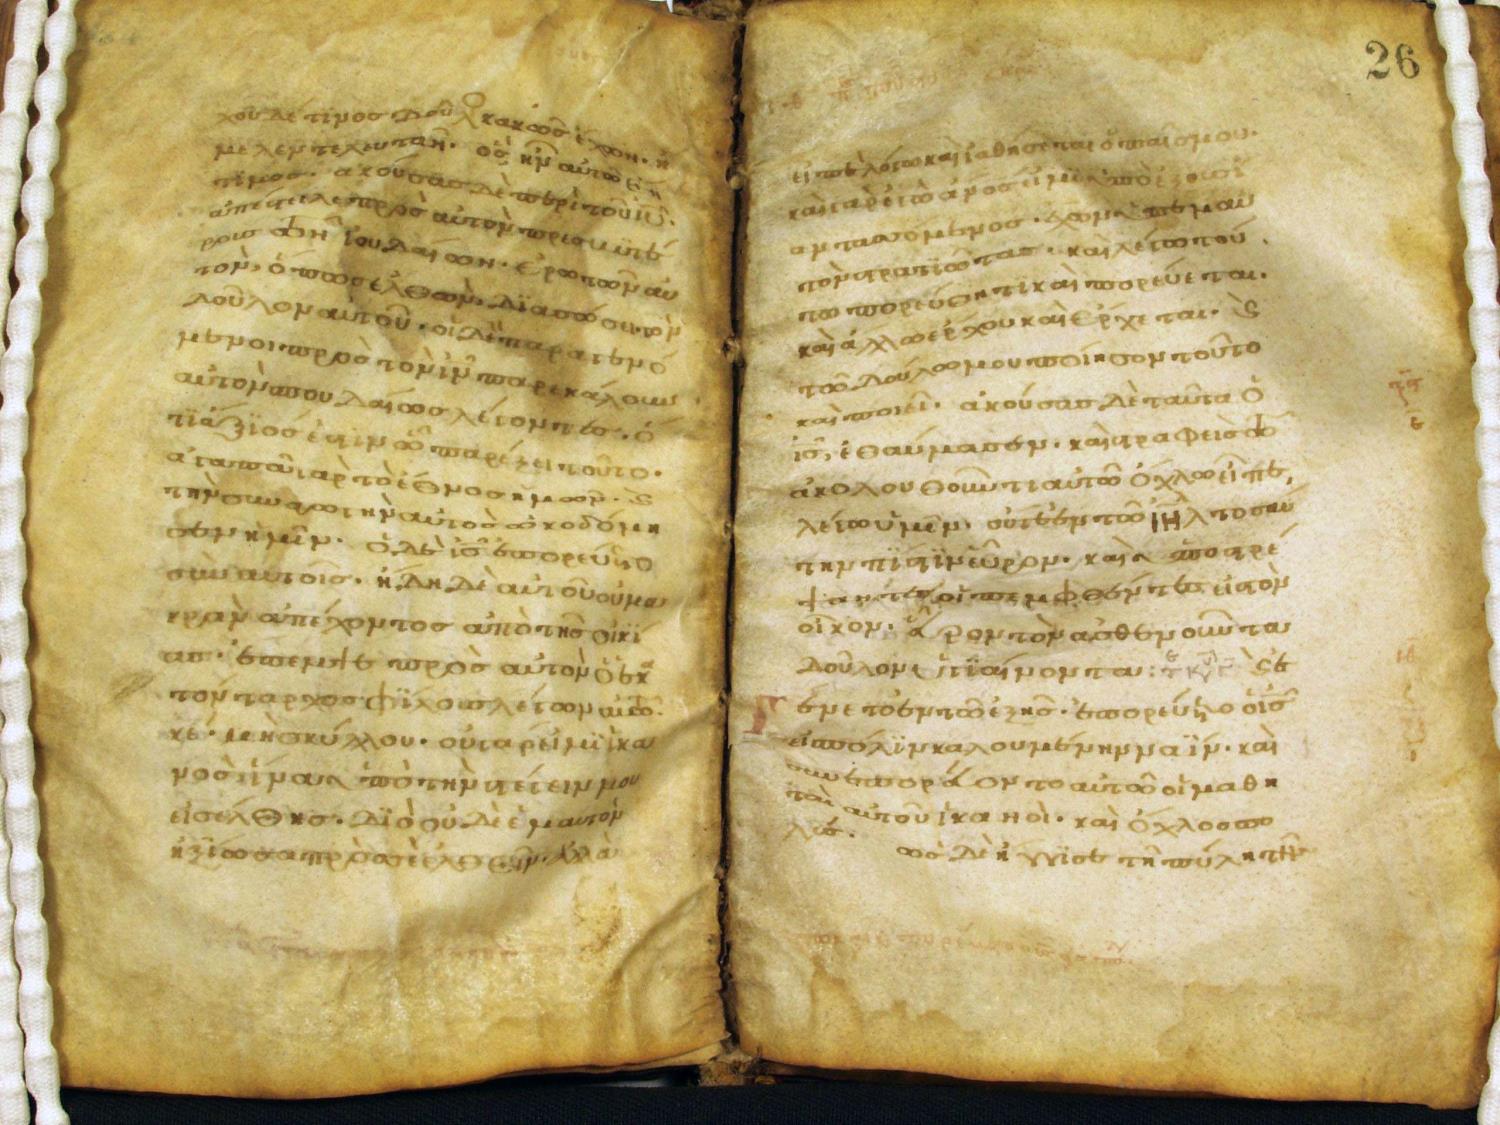 χου δέ τινος δοῦλος κακῶς ἔχων· ἤ
μελλεν τελευτᾶν· ὃς ἦν αὐτῶ ἔν
τιμος· ἀκούσας δὲ περὶ τοῦ ἰῦ·
ἀπέστειλε πρὸς αὐτὸν πρεσβυτέ
ρους τῶν ἰουδαίων· ἐρωτῶν αὐ
τὸν, ὅπως ἐλθὼν διασώσει τὸν
δοῦλον αὐτοῦ· οἱ δὲ παραγενό
μενοι πρὸς τὸν ἰν παρεκάλουν
αὐτὸν σπουδαίως λέγοντες· ὅ
τι ἄξιός ἐστιν ὧ παρέξει τοῦτο·
ἀγαπᾶ γὰρ τὸ ἔθνος ἡμῶν· ϛ
τὴν συναγωγὴν αὐτὸς ὠκοδόμη
σεν ἡμῖν· ὁ δὲ ἰς ἐπορεύετο
σὺν αὐτοῖς· ἤδη δὲ αὐτοῦ οὐ μα
κρὰν ἀπέχοντος ἀπὸ τῆς οἰκί
ας· ἔπεμψε πρὸς αὐτὸν ὁ ἑκα
τόνταρχος φίλους λέγων αὐτῶ·
κε· μὴ σκύλλου· οὐ γὰρ εἰμὶ ἱκα
νὸς ἵνα ὑπὸ τὴν στέγην μου
εἰσέλθης· διὸ οὐδὲ ἐμαυτὸν
ἠξίωσα πρὸς σὲ ἐλθεῖν· ἀλλὰ
26
εἰπὲ λόγω καὶ ἰαθήσεται ὁ παῖς μου·
καὶ γὰρ ἐγὼ ἄνος εἰμὶ ὑπὸ ἐξουσί
αν τασσόμενος· ἔχων ὑπ ἐμαυ
τὸν στρατιώτας· καὶ λέγω τού
τω πορεύθητι καὶ πορεύεται·
καὶ ἄλλω ἔρχου καὶ ἔρχεται· ϛ
τῶ δούλω μου ποίησον τοῦτο
καὶ ποιεῖ· ἀκούσας δὲ ταῦτα ὁ
ἰς, ἐθαύμασεν· καὶ στραφεὶς τῶ
ἀκολουθοῦντι αὐτῶ ὄχλω εἶπε,
λέγω ὑμῖν· οὔτε ἐν τῶ ἰηλ τοσαύ
την πίστιν εὗρον· καὶ ὑποστρέ
ψαντες οἱ πεμφθέντες εἰς τὸν
οἶκον· εὗρον τὸν ἀσθενοῦντα
δοῦλον ὑγιαίνοντα:
ἐγένετο ἐν τῶ ἑξῆς· ἐπορεύετο ὁ ἰς
εἰς πόλιν καλουμένην ναΐν· καὶ
συνεπορεύοντο αὐτῶ οἱ μαθη
ταὶ αὐτοῦ ἱκανοὶ· καὶ ὄχλος πο
λύς· ὡς δὲ ἤγγισε τῆ πύλη τῆς